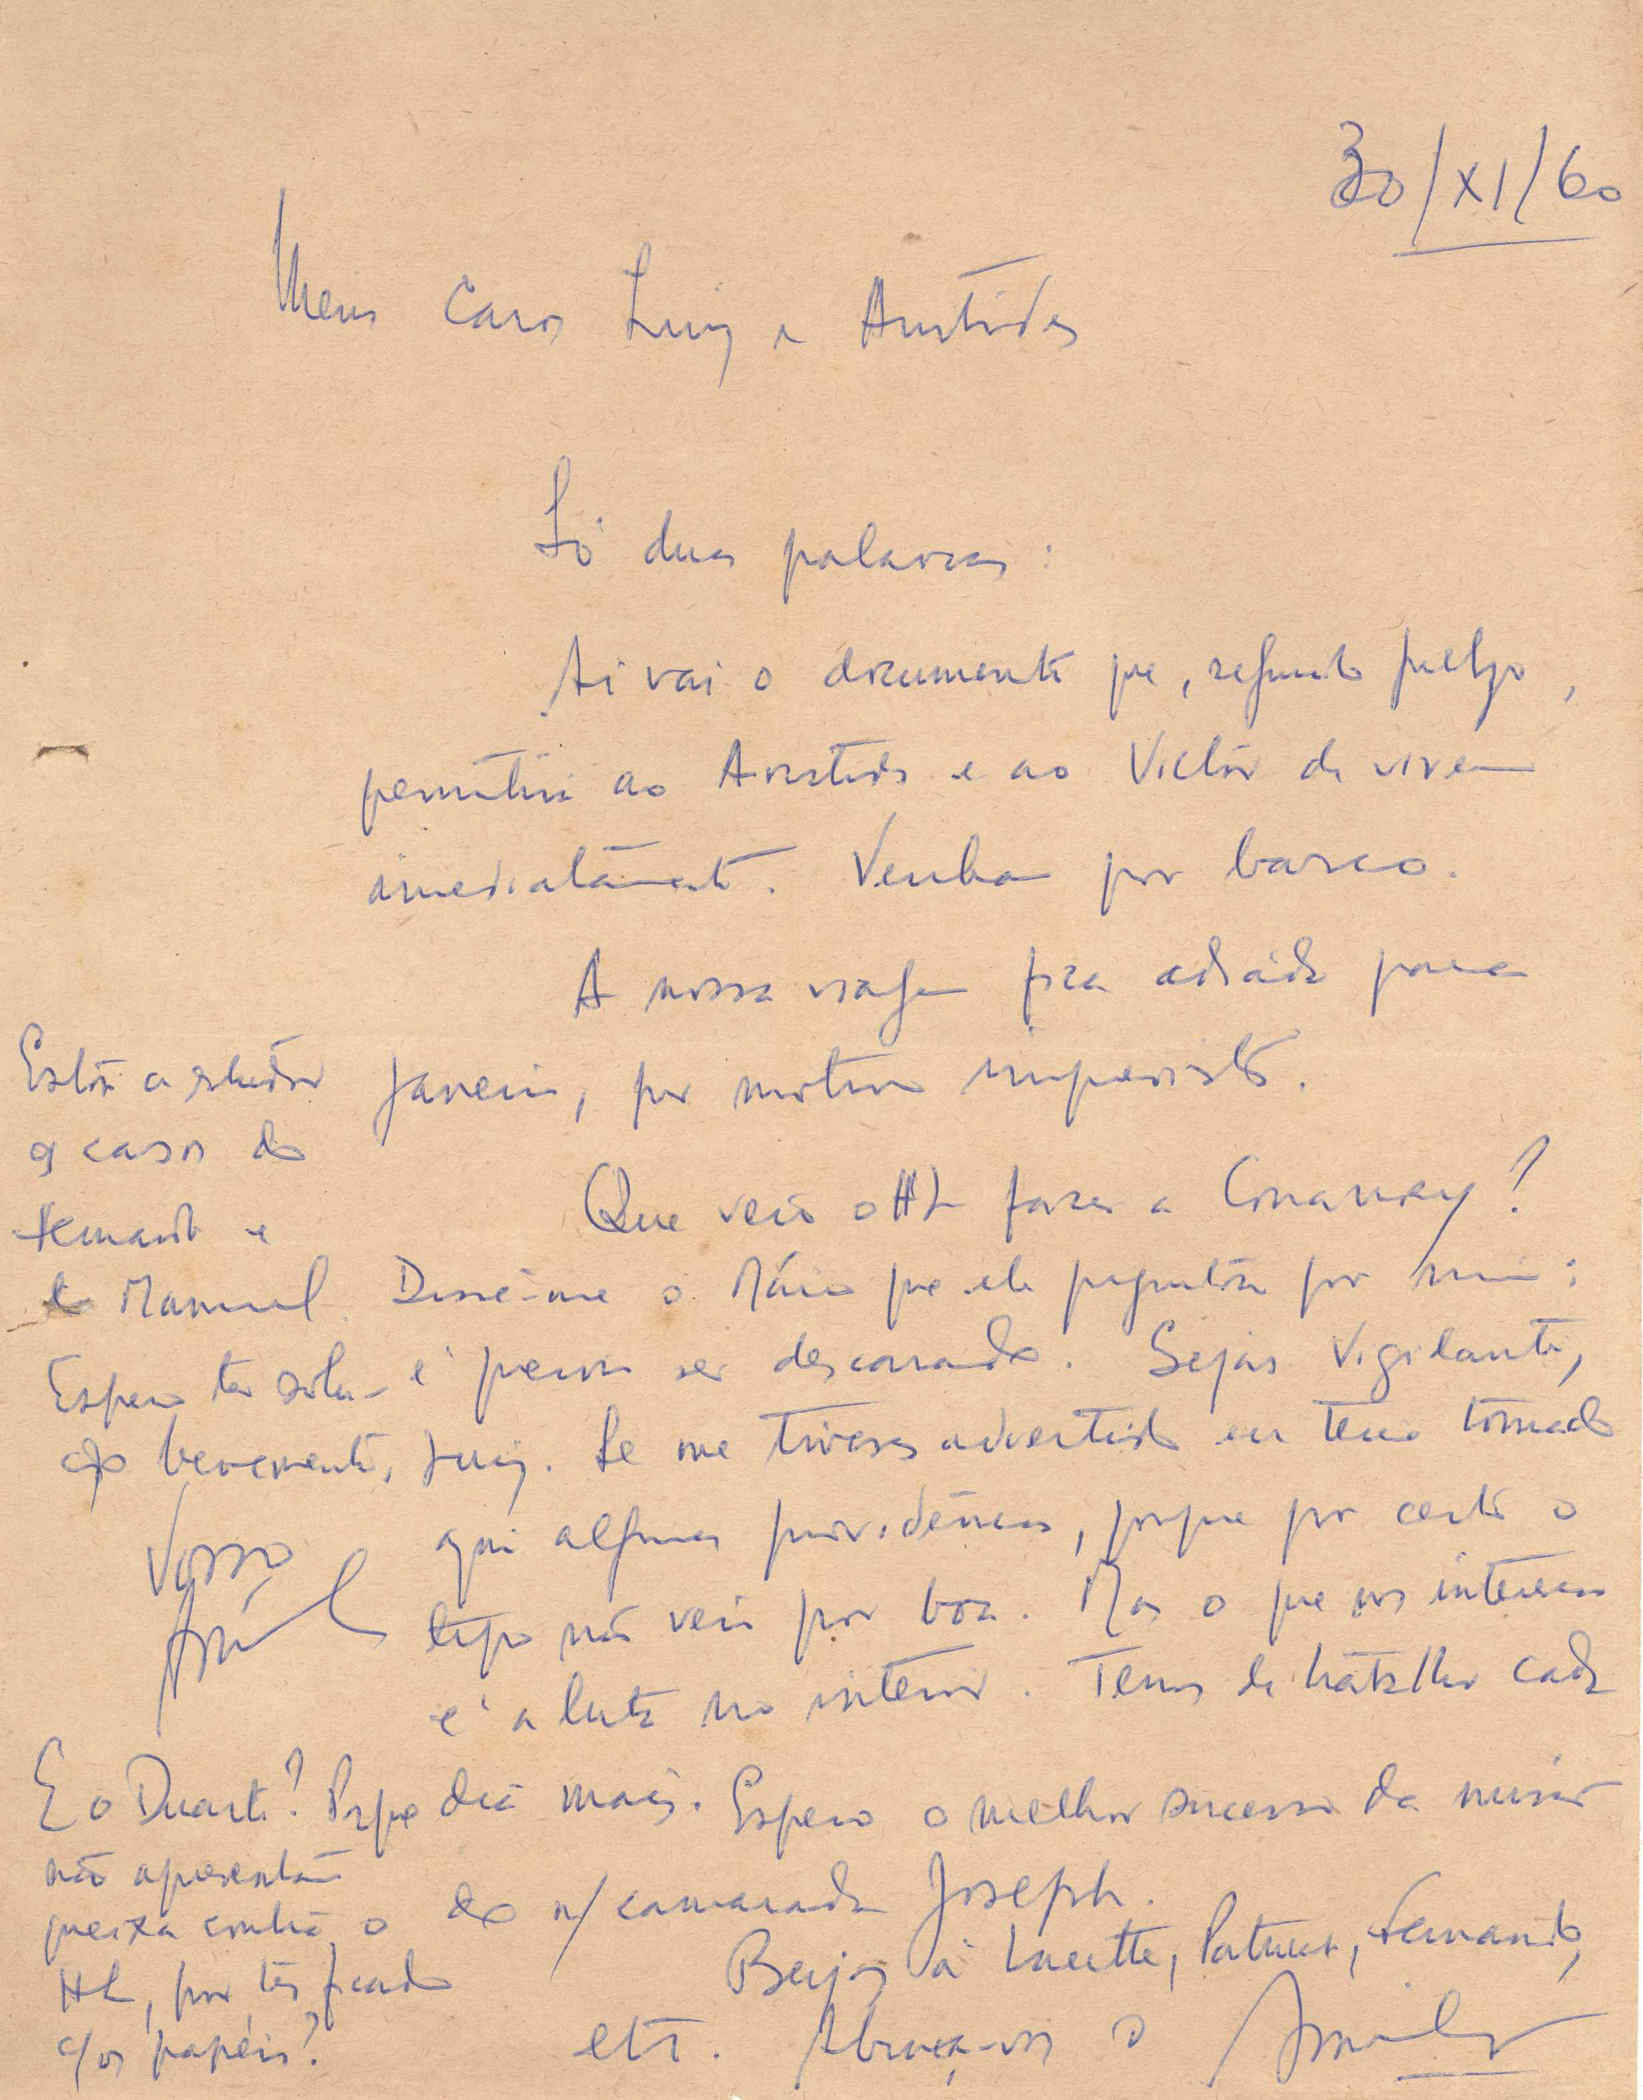 30/XI/60
Meus Caros Luiz e Aristides
Só duas palavras:
Aí vai o documento que, segundo julgo,
permitirá ao Aristides e ao Victor de virem
imediatamente. Venham por barco.
A nossa viagem fica adiada para
Janeiro, por motivo imprevisto.
Que veio o HL fazer a Conakry?
Disse-me o Mário que ele perguntou por mim:
é preciso ser descarado. Sejas vigilante,
Luiz. Se me tivesses advertido eu teria tomado
aqui algumas providências, porque por certo o
tipo não veio por boa. Mas o que nos interessa
é a luta no interior. Temos de trabalhar cada
dia mais. Espero o melhor sucesso da missão
do n/ camarada Joseph.
Beijos à Lucette, Fernando,
etc. Abraça-vos o
Estou a estudar
os casos do
Fernando e
do Manuel.
Espero ter solu-
ção brevemente.
Vosso
E o Duarte? Porque
não apresentam
queixa contra o
HL, por ter ficado
c/ os papéis?